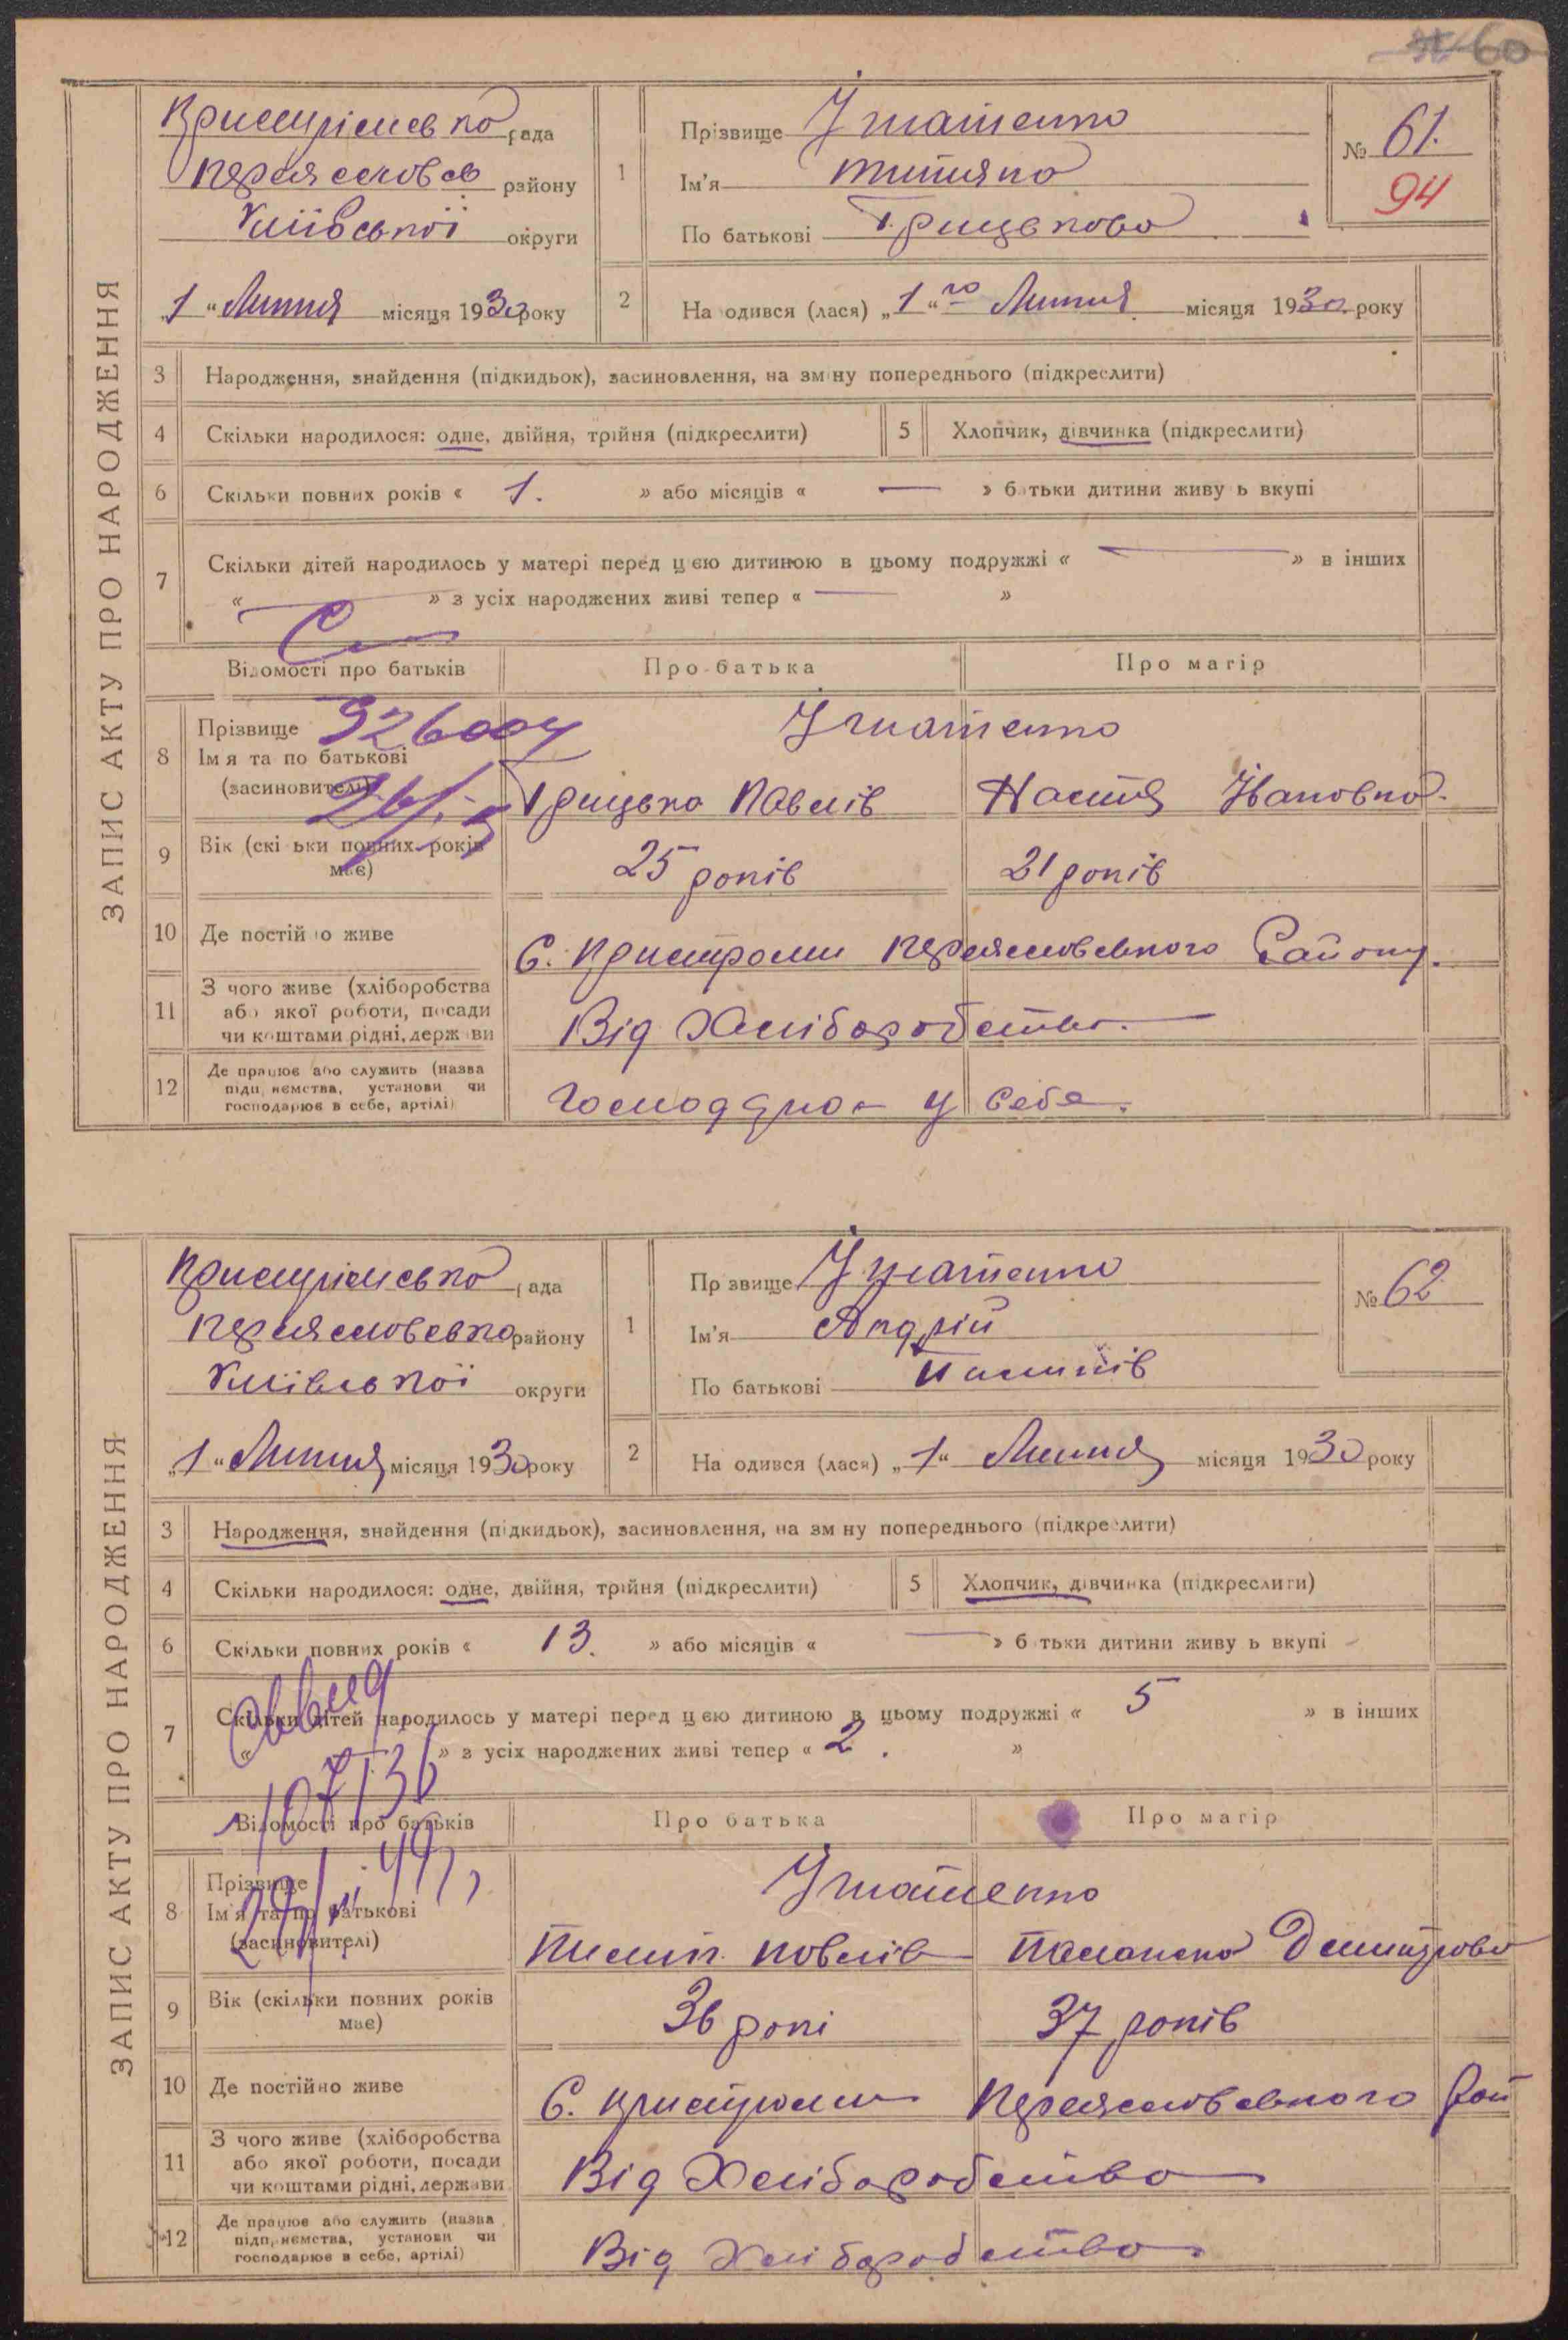 60
ЗАПИС АКТУ ПРО НАРОДЖЕННЯ
Пристрімсько рада
Переясловсо району
Київської округи
„1“ Липня місяця 1930 року
1
Прізвище Ігнатенко
Ім'я Титяно
По батькові Грицькова
№ 61.
94
2
На одився (лася) „1“го Липня місяця 1930 року
3 Народження, знайдення (підкидьок), засиновлення, на зм ну попереднього (підкреслити)
4 Скільки народилося: одне, двійня, трійня (підкреслити)
5 Хлопчик, дівчинка (підкреслити)
6 Скільки повних років « 1. » або місяців « — » б тьки дитини живу ь вкупі
7 Скільки дітей народилось у матері перед цею дитиною в цьому подружжі « — » в інших
« — » з усіх народжених живі тепер « — »
Відомості про батьків
Про батька
Про матір
8 Прізвище
Ім я та по батькові
(засиновителі)
926004
Ігнатенко
Грицько Павлів
Настя Івановно.
9 Вік (скі ьки повних років
має)
25 років
21 років
10 Де постій о живе
С. Пристроми Переясловського Району.
11 З чого живе (хліборобства
або якої роботи, посади
чи коштами рідні, держ ви
Від Хліборобства.
12 Де працює або служить (назва
підп, немства, установи чи
господарює в себе, артілі)
Господарю у себе.
ЗАПИС АКТУ ПРО НАРОДЖЕННЯ
Пристрімсько рада
Переясловсько району
Київської округи
„1“ Липня місяця 1930 року
1
Пр звище Ігнатенко
Ім'я Андрій
По батькові Пилипів
№ 62
2
На одився (лася) „1“ Липня місяця 1930 року
3 Народження, знайдення (підкидьок), засиновлення, на зм ну попереднього (підкре лити)
4 Скільки народилося: одне, двійня, трійня (підкреслити)
5 Хлопчик, дівчинка (підкреслити)
6 Скільки повних років « 13. » або місяців « — » б тьки дитини живу ь вкупі
7 Скільки дітей народилось у матері перед цею дитиною в цьому подружжі « 5 » в інших
« » з усіх народжених живі тепер « 2. »
Відомості про батьків
Про батька
Про матір
8 Прізвище
Ім'я та по батькові
(засиновителі)
Ігнатенко
Пилип Повлів
Паланка Демитрова
9 Вік (скільки повних років
має)
36 рокі
37 років
10 Де постійно живе
С. Пристроми Переясловського Рай
11 З чого живе (хліборобства
або якої роботи, посади
чи коштами рідні, держави
Від Хліборобства
12 Де працює або служить (назва
підп, немства, установи чи
господарює в себе, артілі)
Від Хліборобства.